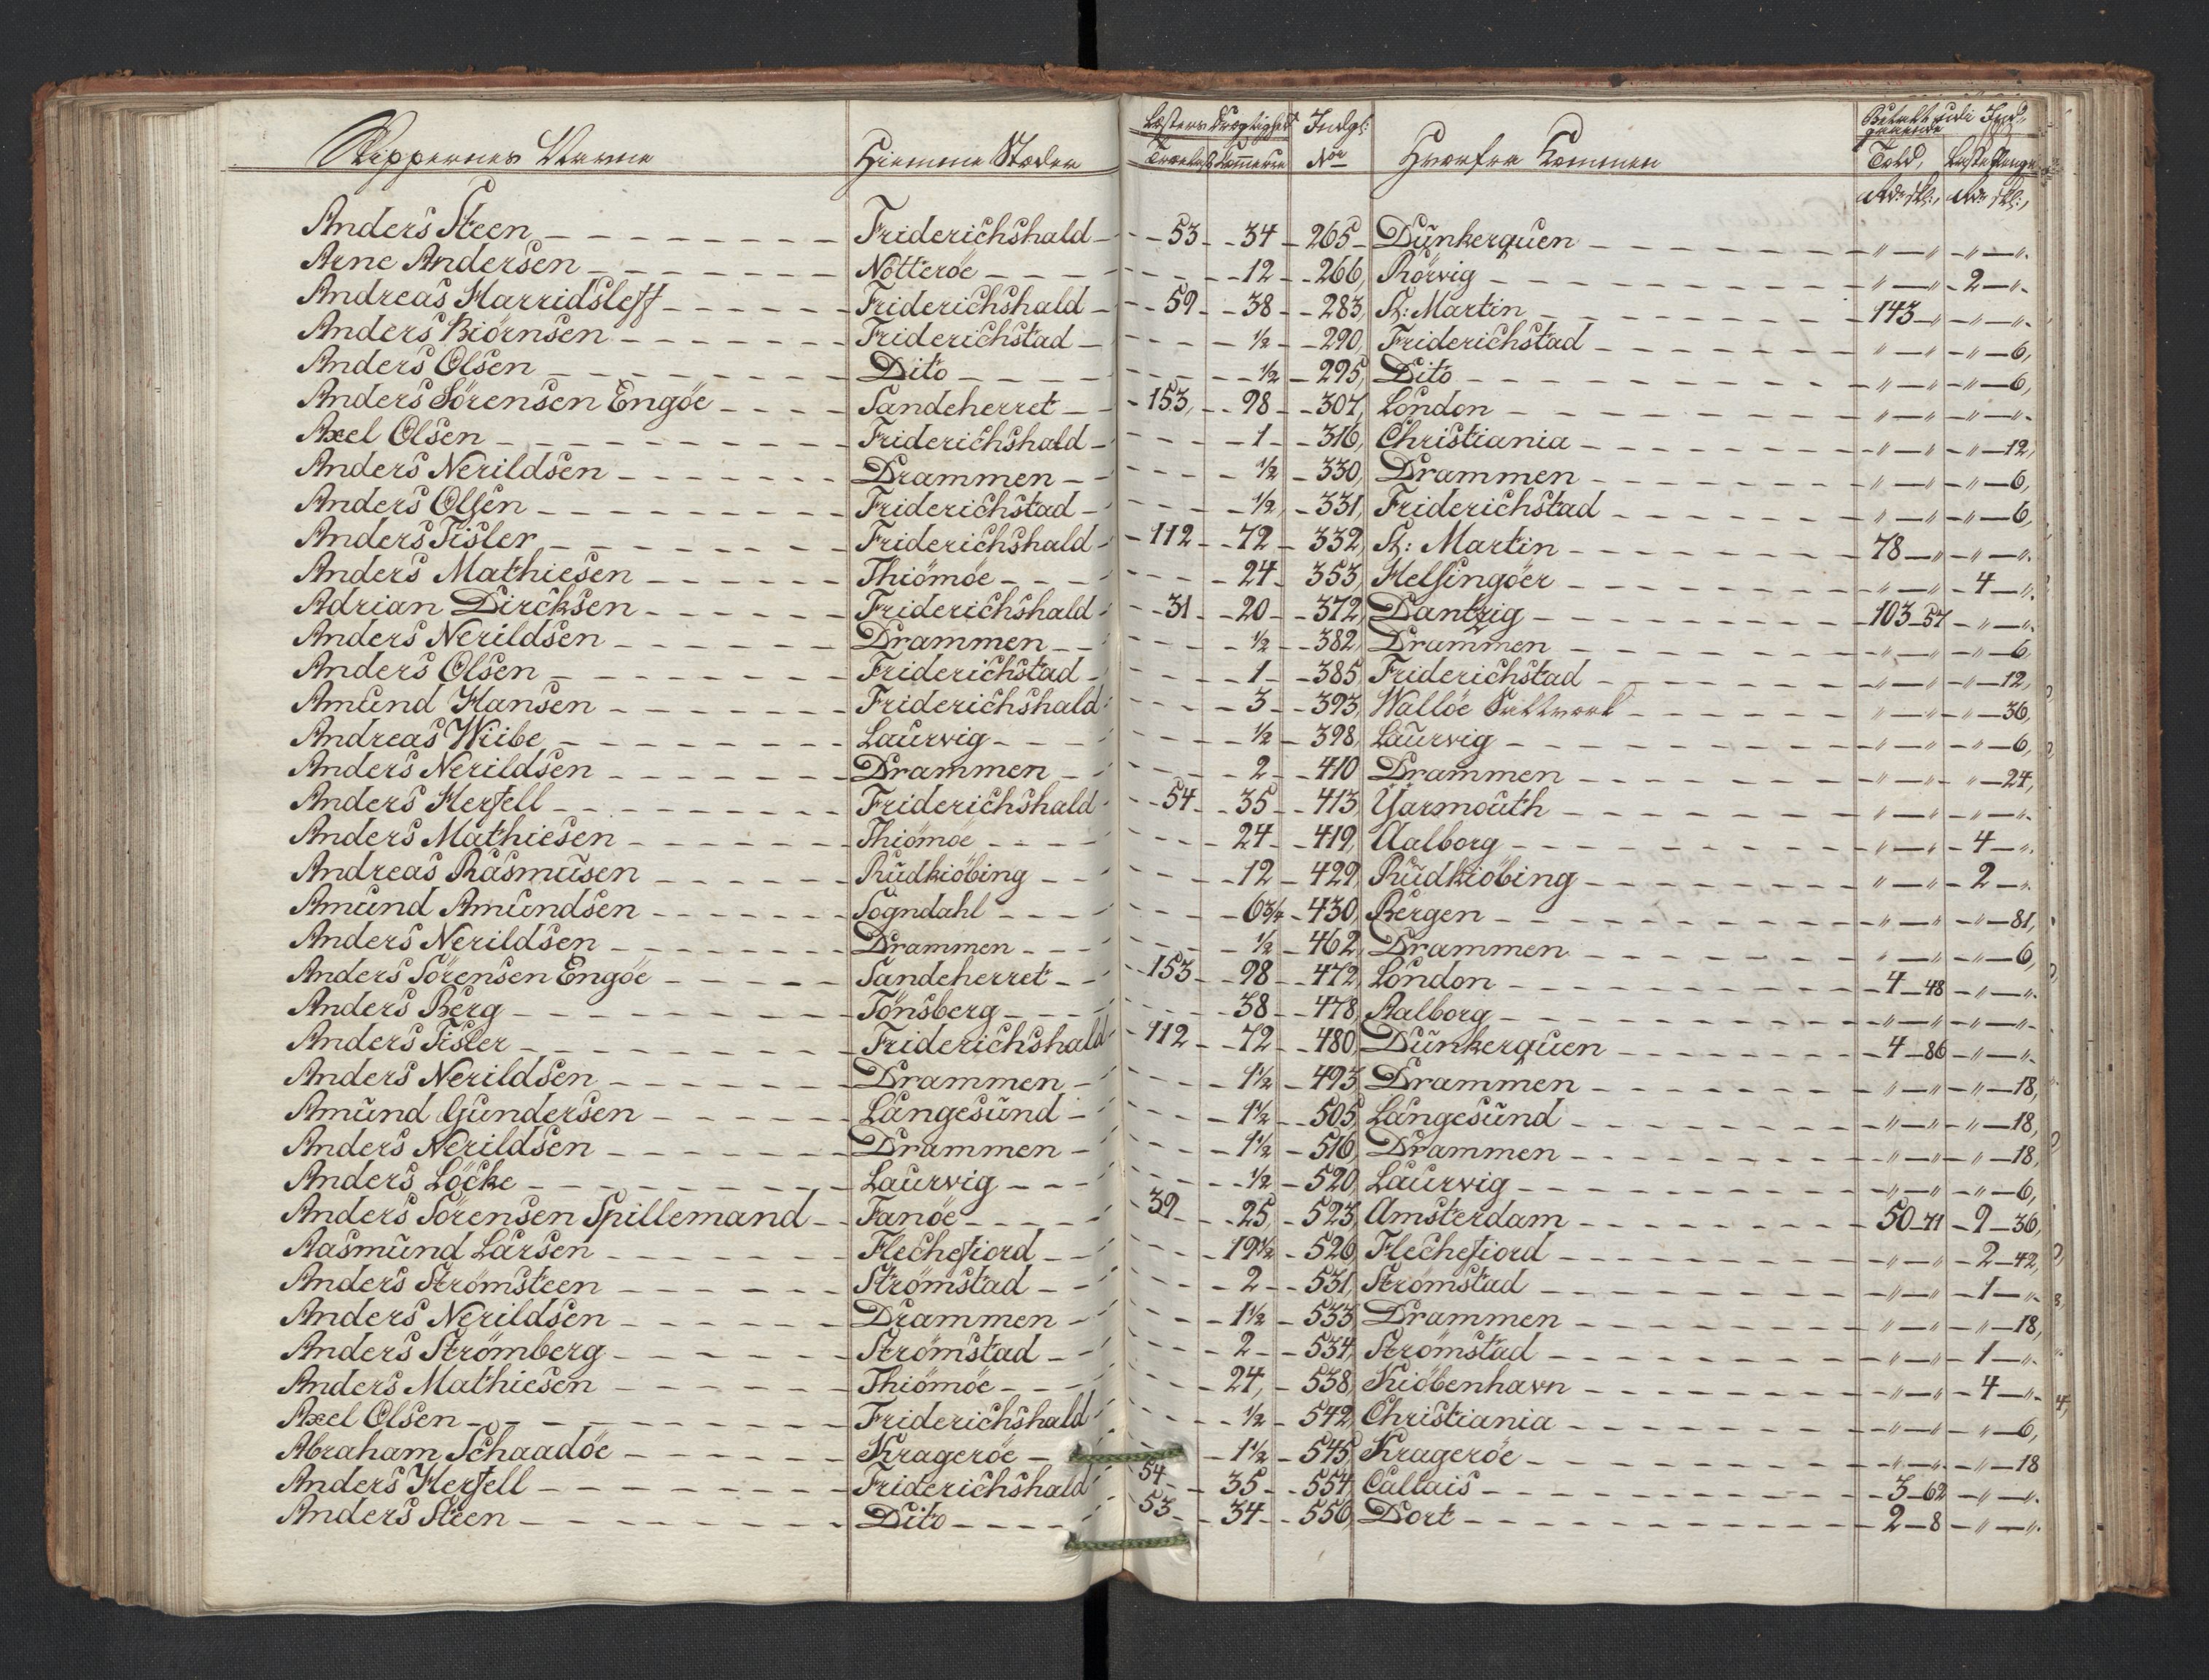 Skippernes Navne | Hiemme Stæder | Læsters Drægtighed Trælast Commerce | Indgl: No | Hvorfra Kommen | Betalt udi Indgaaende Told, Læstepenge
Rdr skl:, Rdr skl:,
Anders Steen — Friderichshald — 53 — 34 — 265 — Dünkerquen — " — " — " — "
Arne Andersen — Nötteröe — 12 — 266, Rörvig — " — " — 2 — "
Andreas Harridsleff — Friderichshald — 59 — 38 — 283, St: Martin — 143 — " — " — "
Anders Biörnsen — Friderichstad — ½ — 290, Friderichstad — " — " — " — 6,
Anders Olsen — Dito — ½ — 295, Dito — " — " — " — 6,
Anders Sörensen Engöe — Sandeherret — 153, — 98 — 307, London — " — " — " — "
Axel Olsen — Friderichshald — 1 — 316, Christiania — " — " — " — 12,
Anders Nerildsen — Drammen — ½ — 330, Drammen — " — " — " — 6,
Anders Olsen — Friderichstad — ½ — 331, Friderichstad — " — " — " — 6,
Anders Tisler — Friderichshald — 112 — 72 — 332, St: Martin — 78 — " — " — "
Anders Mathiesen — Thiömöe — 24 — 353, Helsingöer — " — " — 4 — "
Adrian Dircksen — Friderichshald — 31 — 20 — 372, Dantzig — 103 — 57 — " — "
Anders Nerildsen — Drammen — ½ — 382, Drammen — " — " — " — 6
Anders Olsen — Friderichstad — 1 — 385, Friderichstad — " — " — " — 12,
Amünd Hansen — Friderichshald — 3 — 393, Wallöe Saltverk — " — " — " — 36,
Andreas Wiibe — Laürvig — ½ — 398, Laürvig — " — " — " — 6,
Anders Nerildsen — Drammen — 2 — 410 Drammen — " — " — " — 24,
Anders Herfell — Friderichshald — 54 — 35 — 413, Yarmouth — " — " — " — "
Anders Mathiesen — Thiömöe — 24 — 419, Aalborg — " — " — 4 — "
Andreas Rasmüsen — Rüdkiöbing — 12 — 429, Rüdkiöbing — " — " — 2 — "
Amünd Amündsen — Sogndahl — 6¾ — 430, Bergen — " — " — " — 81,
Anders Nerildsen — Drammen — ½ — 462, Drammen — " — " — " — 6,
Anders Sörensen Engöe — Sandeherret — 153 — 98 — 472, London — 4 — 48 — " — "
Anders Berg — Tönsberg — 38 — 478, Aalborg — " — " — " — "
Anders Tisler — Friderichshald — 112 — 72 — 480, Dünkerquen — 4 — 86 — " — "
Anders Nerildsen — Drammen — 1½ — 493, Drammen — " — " — " — 18,
Amünd Gundersen — Langesünd — 1½ — 505, Langesünd — " — " — " — 18,
Anders Nerildsen — Drammen — 1½ — 516, Drammen — " — " — " — 18,
Anders Löcke — Laürvig — ½ — 520, Laürvig — " — " — " — 6,
Anders Sörensen Spillemand — Fanöe — 39 — 25, — 523, Amsterdam — 50 — 71 — 9 — 36,
Aasmünd Larsen — Flechefiord — 19½ — 526, Flechefiord — " — " — 2 — 42,
Anders Strömsteen — Strömstad — 2 — 531, Strömstad — " — " — 1 — "
Anders Nerildsen — Drammen — 1½ — 533, Drammen — " — " — " — 18,
Anders Strömberg — Strömstad — 2 — 534, Strömstad — " — " — 1 — "
Anders Mathiesen — Thiömöe — 24, — 538, Kiöbenhavn — " — " — 4 — "
Axel Olsen — Friderichshald — ½ — 542, Christiania — " — " — " — 6,
Abraham Schaadöe — Krageröe — 1½ — 545, Krageröe — " — " — " — 18
Anders Herfell — Friderichshald — 54 — 35 — 554, Callais — 3 — 62 — " — "
Anders Steen — Dito — 53 — 34 — 556, Dort — 2 — 8 — " — "